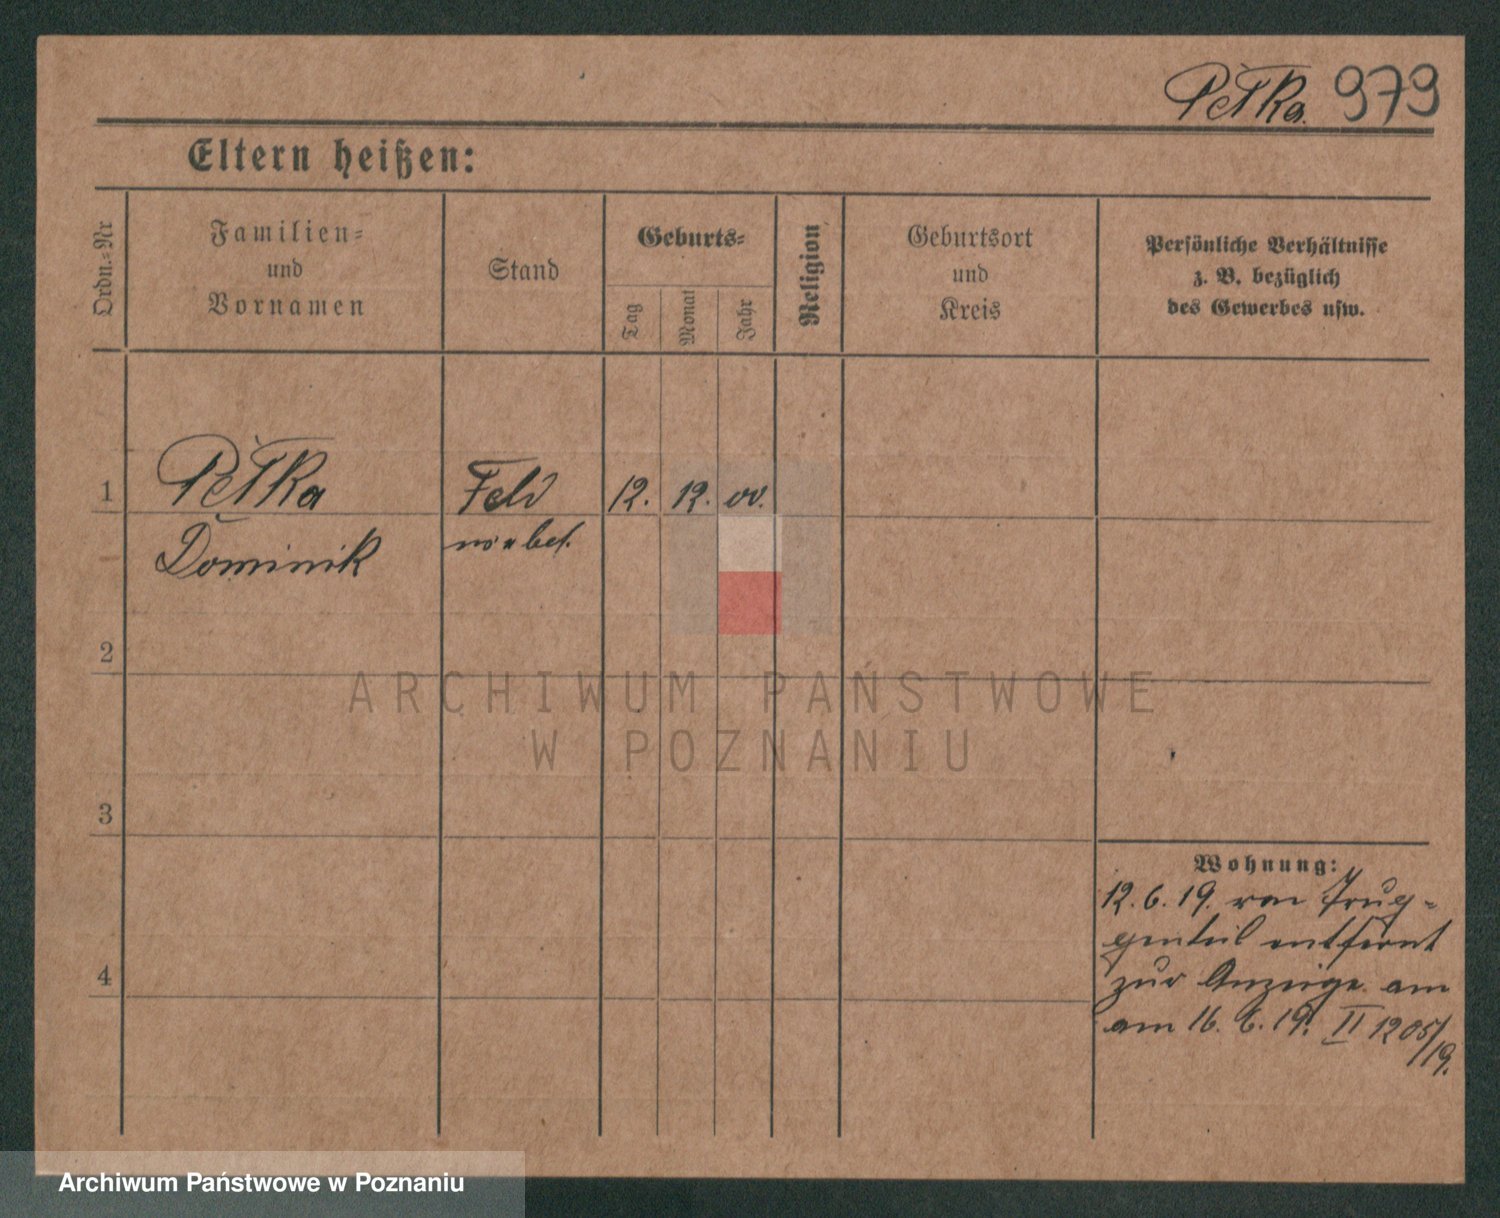 Petka. 979
Eltern heißen:
Ordn.=Nr
Familien=
und
Vornamen
Stand
Geburts=
Tag
Monat
Jahr
Religion
Geburtsort
und
Kreis
Persönliche Verhältnisse
z. B. bezüglich
des Gewerbes usw.
1
Petka
Feld
12. 12. 00.
Dominik
2
ARCHIWUM PAŃSTWOWE
W POZNANIU
3
Wohnung:
12. 6. 19. von
entfernt
4
zur Anzeige am
am 16. 6. 19. II 1205/19.
Archiwum Państwowe w Poznaniu